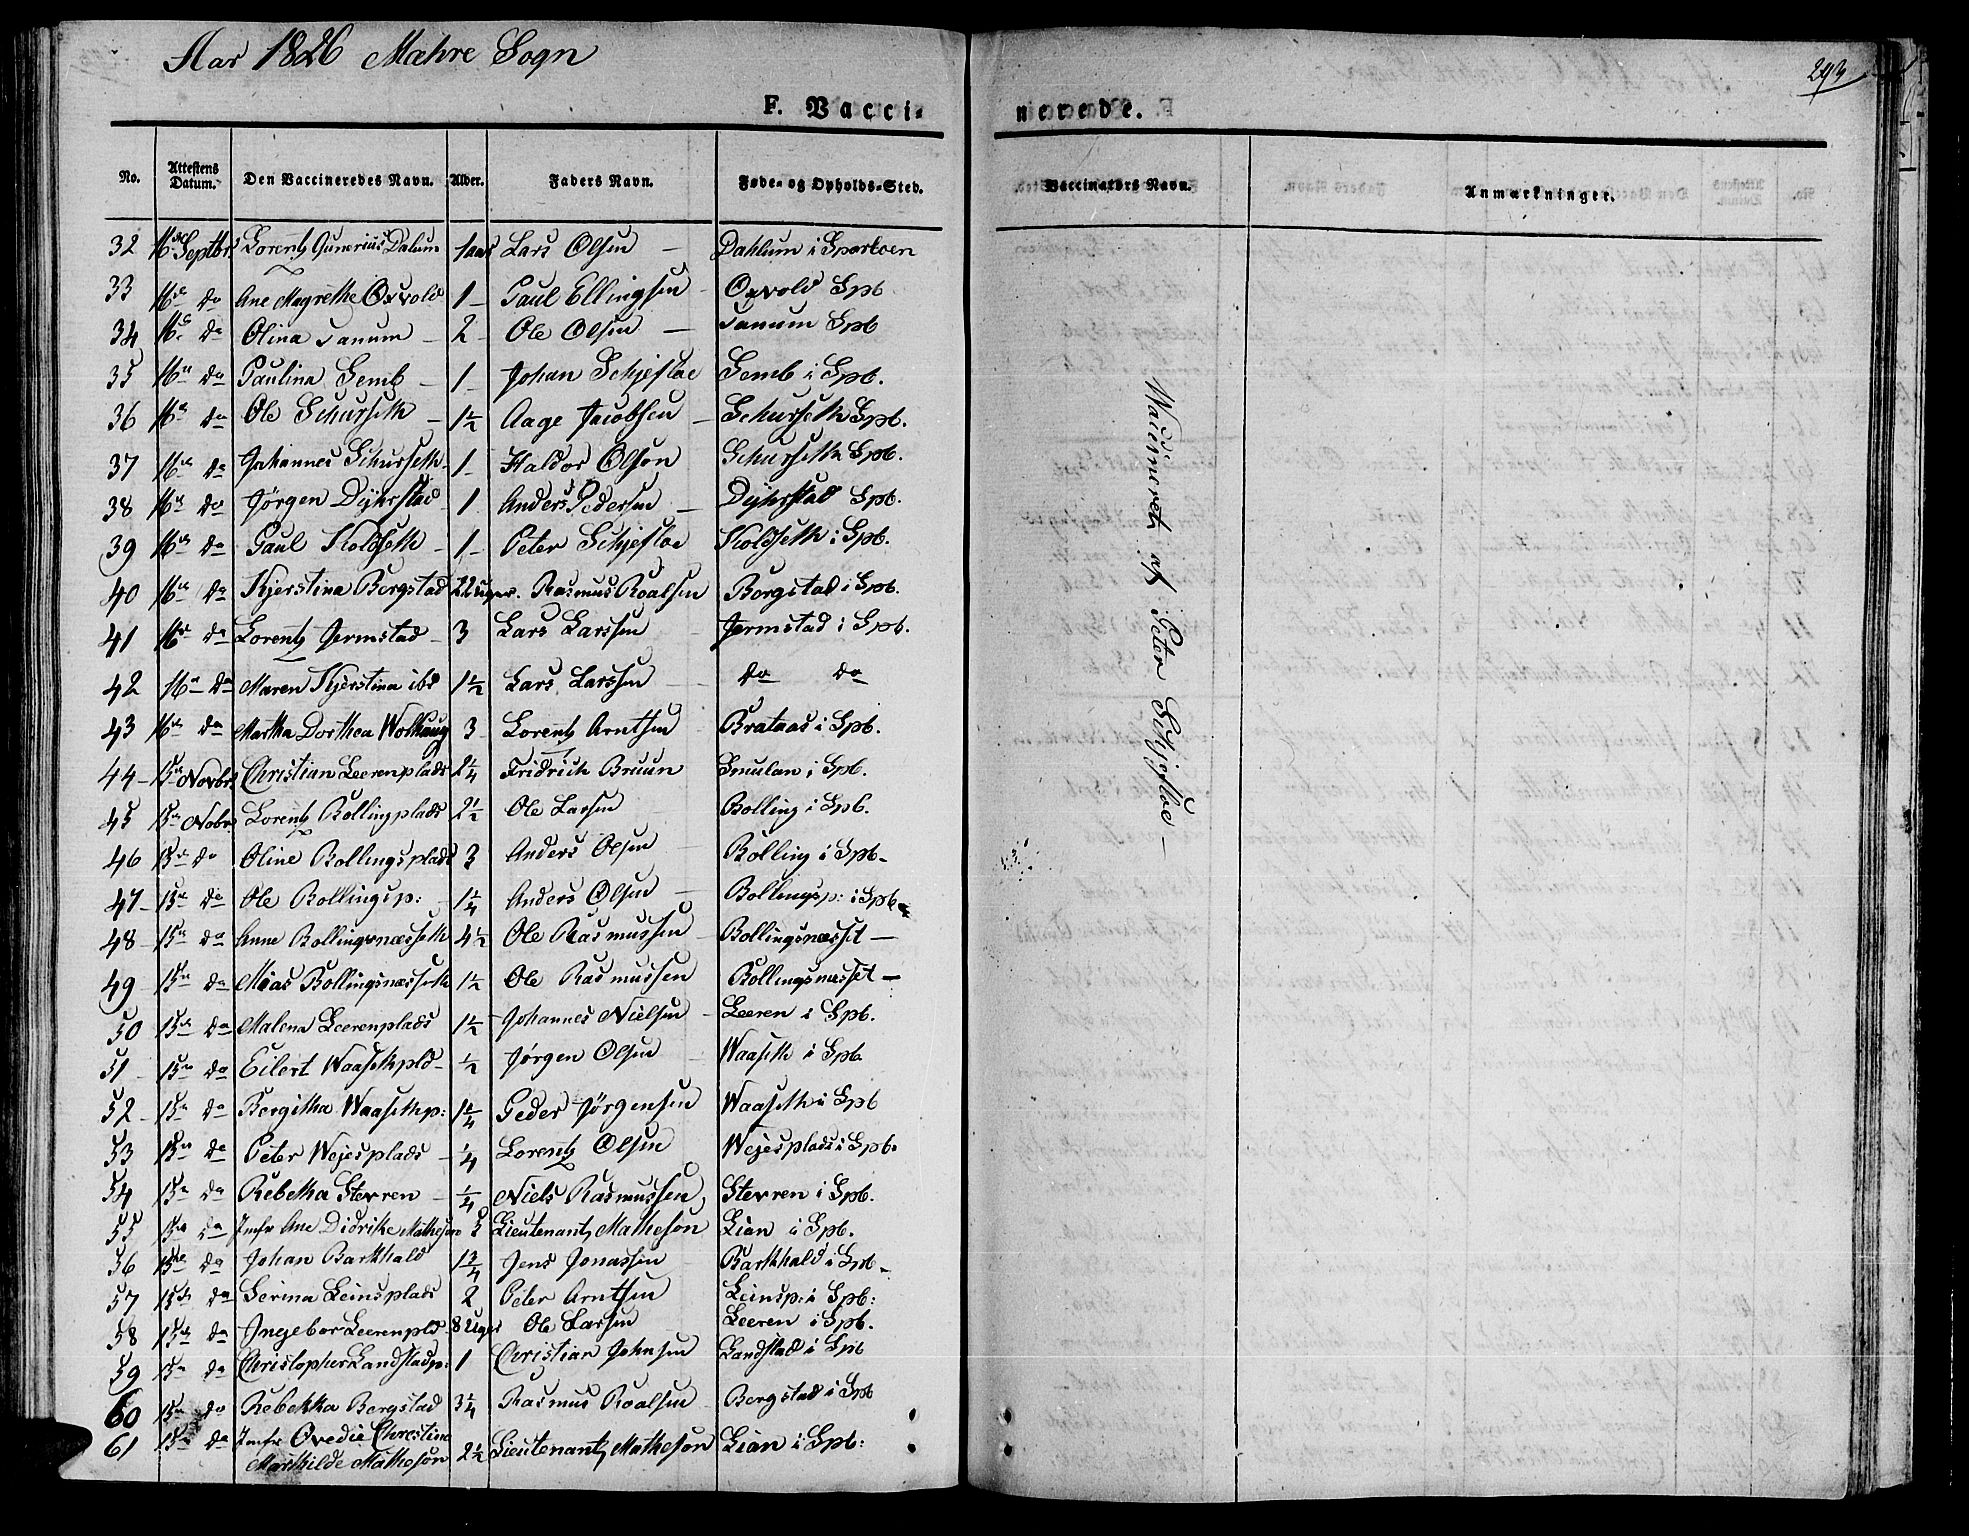 Aar 1826 Mæhre Sogn
293
F. Vacci-
nerede.
No. Attestens Datum. Den Vaccineredes Navn. Alder. Faders Navn. Føde- og Opholds-Sted. Vaccinators Navn. Anmærkninger.
32 16de Septbr Lorentz Gunerius Dalum 1 aar Lars Olsen — Dahlum i Sparboen
33 16de do Ane Magrethe Oxvold 1 — Paul Ellingsen — Oxvold Spb
34 16de do Olina Sanum — 2 — Ole Olsen — Sanum Spb
35 16de do Paulina Semb — 1 — Johan Schjefloe Semb i Spb.
36 16de do Ole Schurseth — 1½ Aage Jacobsen — Schurseth Spb.
37 16de do Johannes Schurseth — 1 — Haldor Olsen Schurseth Spb.
38 16de do Jørgen Dyhrstad 1 Anders Pedersen — Dyhrstad Spb.
39 16de do Paul Holdseth — 1 — Peter Schjefloe Holdseth i Spb.
40 16de do Kjerstina Bergstad 22 uger. Rasmus Roalsen Borgstad i Spb.
41 16de do Lorentz Jermstad — 3 Lars Larssen Jermstad i Spb.
42 16de do Maren Kjerstina ibd 1½ Lars Larssen — do do
43 16de do Martha Dorthea Wolhaug 3 Lorentz Arntsen Brataas i Spb.
44 — 15de Novbr Christian Leerenplads 2¼ Fridrich Bruun Smulan i Spb.
45 15de Nobr Lorentz Bollingplads 2½ Ole Larsen Bolling i Spb.
46 15de do Oline Bollingsplads 3 Anders Olsen — Bolling i Spb —
47 — 15de do Ole Bollingsp: 1¼ Anders Olsen — Bollingsp: i Spb
48 — 15de do Anne Bollingsnæsseth 4½ Ole Rasmussen — Bollingsnæsset —
49 15de do Moas Bollingsnæsseth 1½ Ole Rasmussen Bollingsnæsset —
50 15de do Malena Leerenplads 1½ Johannes Nielsen — Leeren i Spb.
51 15de do Eilert Waasethpld — ½ Jørgen Olsen — Waaseth i Spb
52 — 15de do Bergitha Waasethp: 1¼ Peder Jørgensen Waaseth i Spb
53 15de do Peter Wejesplads — ¼ Lorentz Olsen Wejesplads i Spb.
54 15de do Rebekka Stevren — ¼ Niels Rasmussen Stevren i Spb.
55 15de do Jmfr Ane Didrike Matheson 5 Lieutenant Matheson Lian i Spb.
56 15de do Johan Barkhald 1¾ Jens Jonassen Barkhald i Spb —
57 15de do Serina Leinsplads 2 Peter Arntsen Leinsp: i Spb:
58 15de do Ingebor Leerenpld — 8 Uger Ole Larsen Leeren i Spb.
59 15de do Christopher Landstadp: 1 Christian Johnsen Landstad i Spb
60 15de do Rebekka Bergstad 3¼ Rasmus Roalsen Bergstad i Spb
61 15de do Jmfr Ovedie Chrestine
Marthilde Matheson 2½ Lieutenant Matheson Lian i Spb:
Waccineret af Peter Schjefloe —